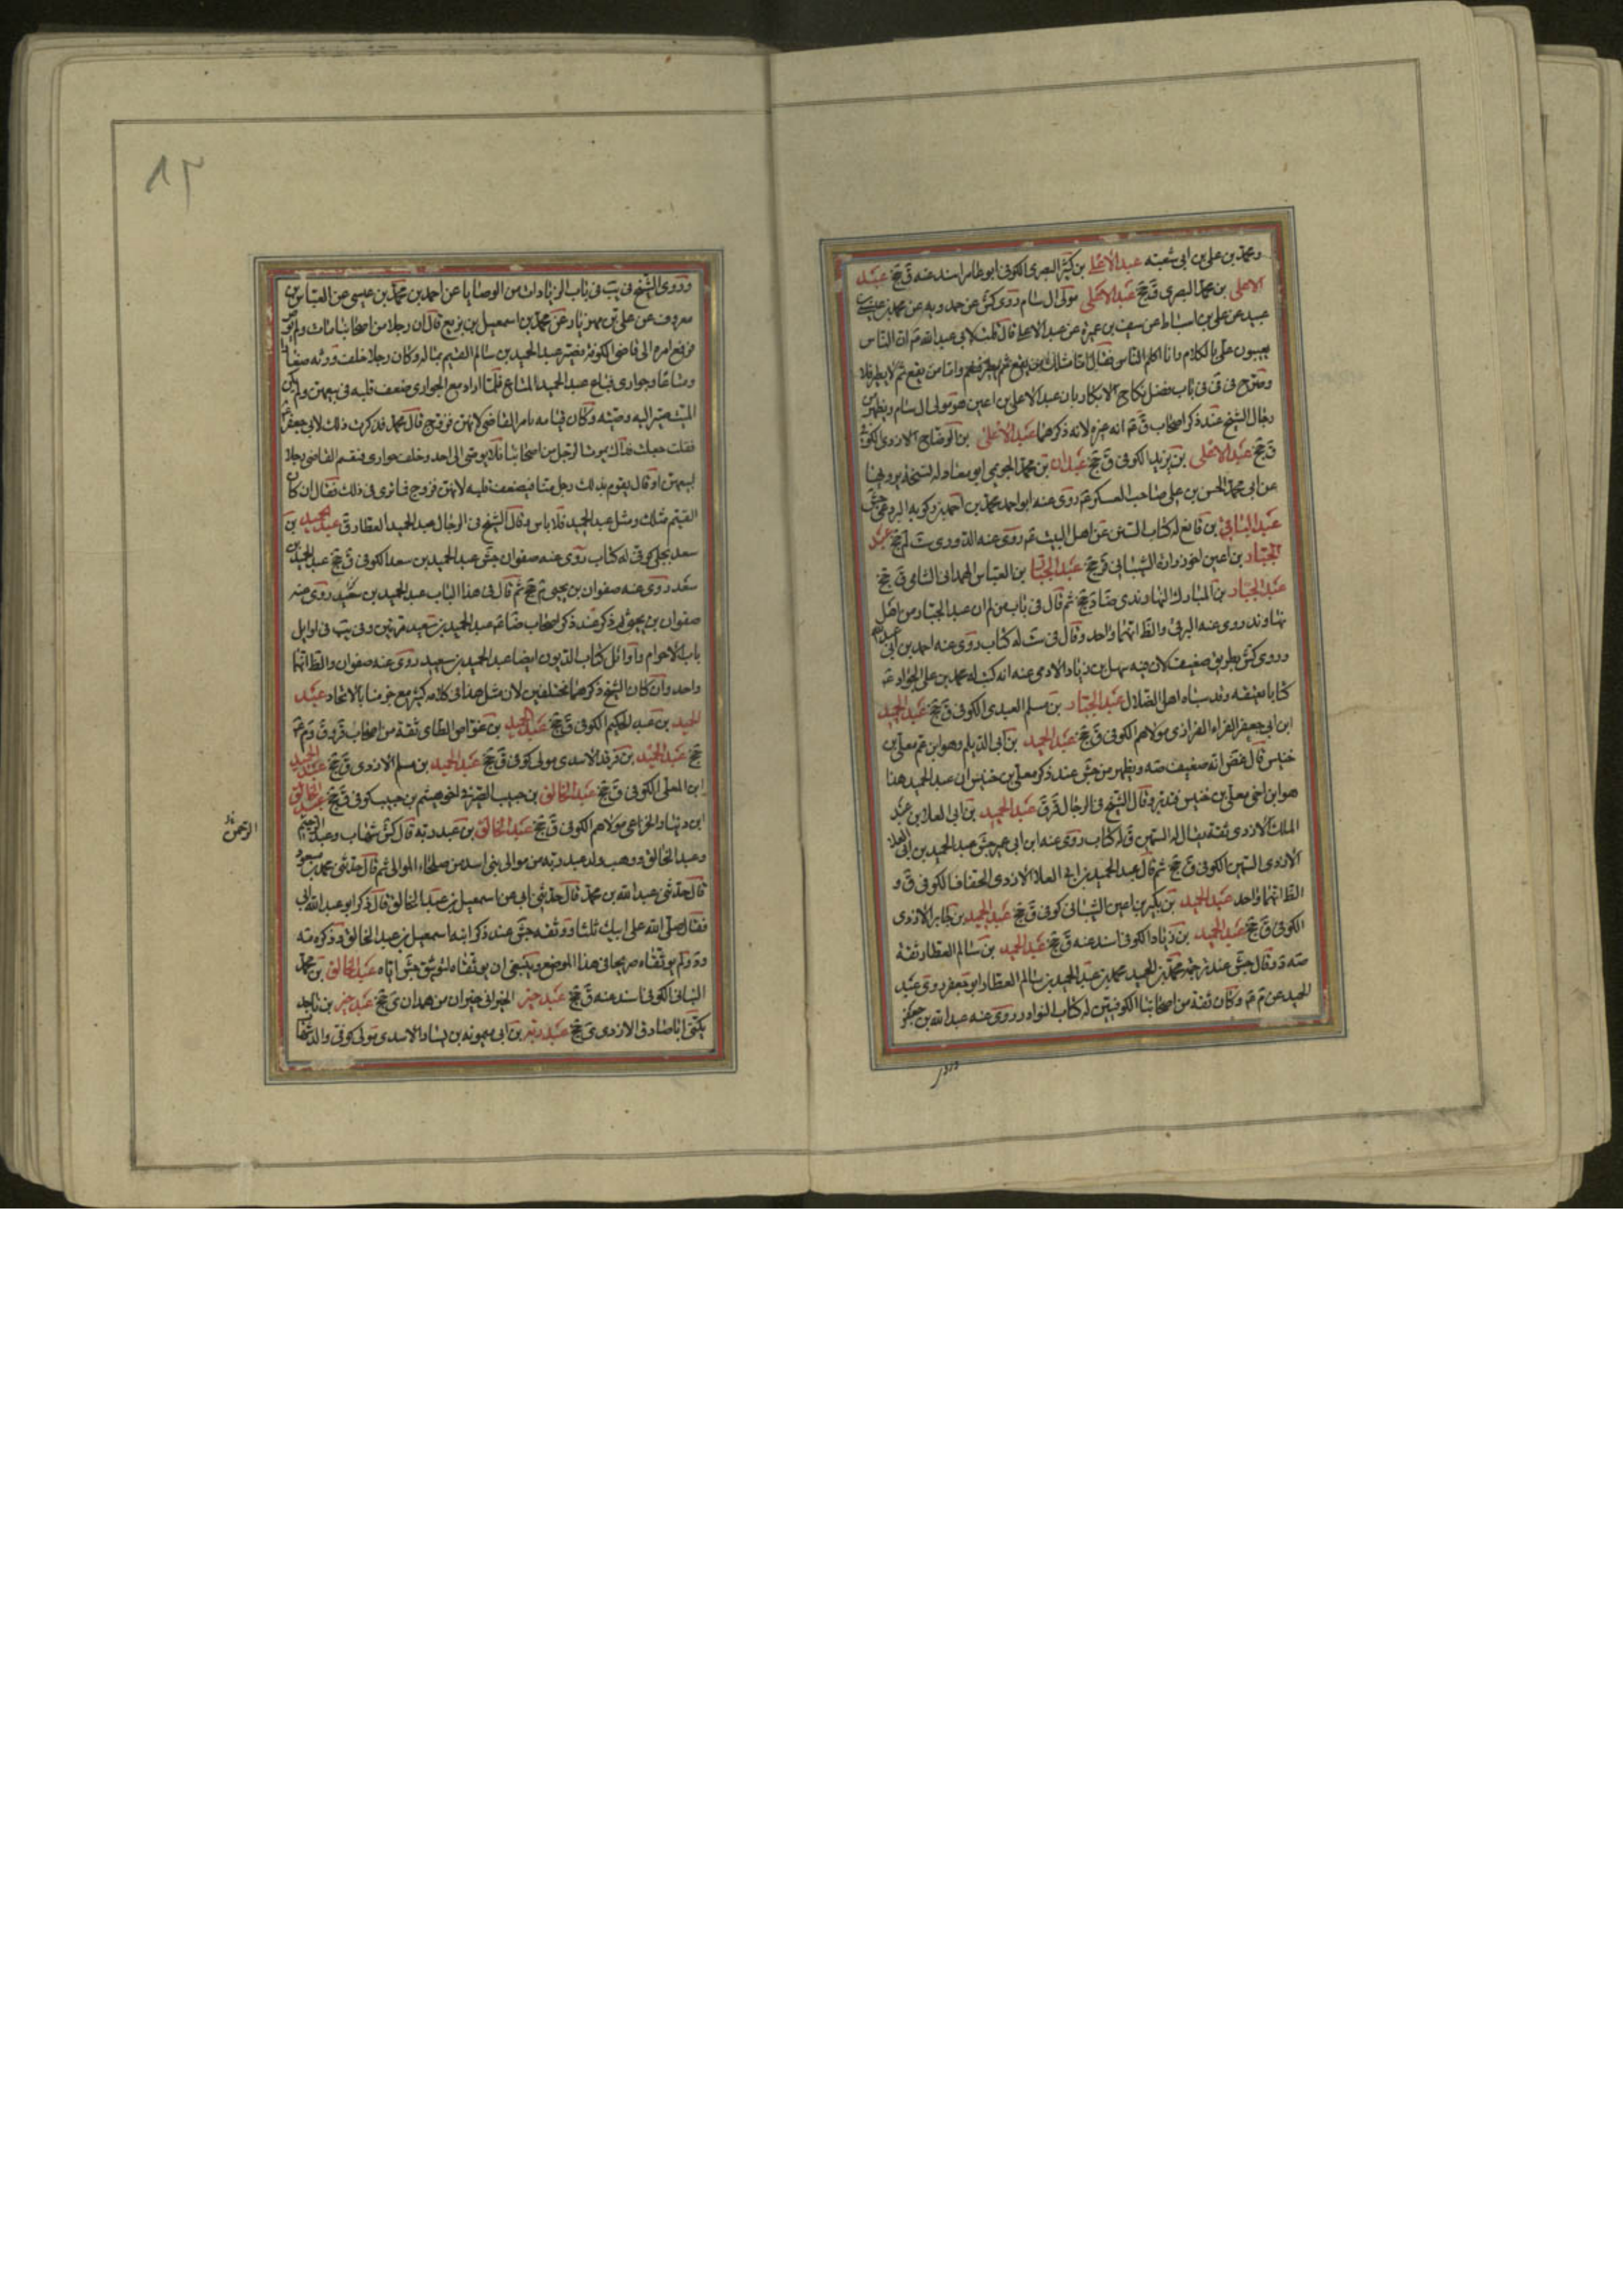 ومحمد بن علي بن ابي شعبة عبد الاعلى بن كثير البصرى الكوفى ابو عامر اسند عنه ق جخ عبد
الاعلى بن محمد البصرى ق جخ عبد الاعلى مولى ال سام روى كش عن حمدويه عن محمد بن عيسى بن
عبيد عن على بن اسباط عن سيف بن عميرة عن عبد الاعلى قال قلت لابى عبد الله ع ان الناس
يعيبون على بالكلام وانا اكلم الناس فقال اما مثلك من يقع ثم يطير فنعم واما من يقع ثم لا يطير فلا
وصرح فى فى باب فضل نكاح الابكار بان عبد الاعلى بن اعين هو مولى ال سام ويظهر من
رجال الشيخ عند ذكر اصحاب ق ع انه غيره لانه ذكرهما عبد الاعلى بن الوضاح الازدى الكوفى
ق جخ عبد الاعلى بن يزيد الكوفى ق جخ عبدان بن محمد الجويمى ابو معاذ له نسخة يرويها
عن ابى محمد الحسن بن على صاحب العسكر ع روى عنه ابو احمد محمد بن احمد
عبد الباقى بن قانع له كتاب السنن عن اهل البيت ع روى عنه الدورى ست لم جخ عبد
الجبار بن اعين اخو زرارة الشيبانى قر جخ عبد الجبار بن العباس الهمدانى الشامى ق جخ
عبد الجبار بن المبارك النهاوندى ضا د جخ ثم قال فى باب من لم ان عبد الجبار من اهل
نهاوند روى عنه البرقى والظ انهما واحد وقال فى ست له كتاب روى عنه احمد بن ابى عبد الله
وروى كش بطريق ضعيف لان فيه سهل بن زياد الادمى عنه انه كتب له محمد بن على الجواد ع
كتابا بعتقه وقد سباه اهل الضلال عبد الجبار بن مسلم العبدى الكوفى ق جخ عبد الحميد
ابن ابى جعفر الفراء الفزارى مولاهم الكوفى ق جخ عبد الحميد بن ابى الديلم وهو ابن عم معلى بن
خنيس قال غض انه ضعيف صه ويظهر من جش عند ذكر معلى بن خنيس ان عبد الحميد هذا
هو ابن اخى معلى بن خنيس فتدبر وقال الشيخ فى الرجال قر ق عبد الحميد بن ابى العلاء بن عبد
الملك الازدى ثقة يقال له السمين ق له كتاب روى عنه ابن ابى عمير جش عبد الحميد بن ابى العلا
الازدى السمين الكوفى ق جخ ثم قال عبد الحميد بن ابى العلا الازدى الخفاف الكوفى ق و
الظ انهما واحد عبد الحميد بن بكير بن اعين الشيبانى كوفى ق جخ عبد الحميد بن جابر الازدى
الكوفى ق جخ عبد الحميد بن زياد الكوفى اسند عنه ق جخ عبد الحميد بن سالم العطار ثقة
صه د وقال جش عند ترجمة محمد بن عبد الحميد محمد بن عبد الحميد بن سالم العطار ابو جعفر روى عبد
الحميد عن م ع وكان ثقة من اصحابنا الكوفيين له كتاب النوادر روى عنه عبد الله بن جعفر
وروى الشيخ فى يب فى باب الزيادات من الوصايا عن احمد بن محمد بن عيسى عن العباس بن
معروف عن على بن مهزيار عن محمد بن اسمعيل بن بزيع قال ان رجلا من اصحابنا مات ولم يوص
فرفع امره الى قاضى الكوفة فصير عبد الحميد بن سالم القيم بماله وكان رجلا خلف ورثة صغارا
ومتاعا وجوارى فباع عبد الحميد المتاع فلما اراد بيع الجوارى ضعف قلبه فى بيعهن ولم يكن
الميت صير اليه وصيته وكان قيامه بامر القاضى لانهن فروج قال محمد فذكرت ذلك لابى جعفر ع
فقلت جعلت فداك يموت الرجل من اصحابنا فلا يوصى الى احد وخلف جوارى فيقيم القاضى رجلا
لبيعهن او قال يقوم بذلك رجل منا فيضعف قلبه لانهن فروج فما ترى فى ذلك فقال ان كان
القيم مثلك ومثل عبد الحميد فلا باس وقال الشيخ فى الرجال عبد الحميد العطار ق عبد الحميد بن
سعد بجلى كوفى له كتاب روى عنه صفوان جش عبد الحميد بن سعد الكوفى ق جخ عبد الحميد بن
سعد روى عنه صفوان بن يحيى م جخ ثم قال فى هذا الباب عبد الحميد بن سعيد روى عنه
صفوان بن يحيى ثم ذكر عند ذكر اصحاب ضا ع عبد الحميد بن سعيد مرتين وفى يب فى اوايل
باب الاحرام واوائل كتاب الديون ايضا عبد الحميد بن سعيد روى عنه صفوان والظ انهما
واحد وان كان الشيخ ذكرهما مختلفين لان مثل هذا فى كلامه كثير مع جزمنا بالاتحاد عبد
الحميد بن عبد الحكيم الكوفى ق جخ عبد الحميد بن عواض الطائى ثقة من اصحاب قر و ق و م ع
جخ عبد الحميد بن فرقد الاسدى مولى كوفى ق جخ عبد الحميد بن مسلم الازدى ق جخ عبد الحميد
ابن المعلى الكوفى ق جخ عبد الخالق بن حبيب الصيرفى اخو هيثم بن حبيب كوفى ق جخ عبد الخالق
ابن دينار الخزاعى مولاهم الكوفى ق جخ عبد الخالق بن عبد ربه قال كش شهاب وعبد الرحيم
الرحمن
وعبد الخالق ووهب ولد عبد ربه من موالى بنى اسد من صلحاء الموالى ثم قال حدثنى محمد بن مسعود
قال حدثنى عبد الله بن محمد قال حدثنى ابى عن اسمعيل بن عبد الخالق قال ذكر ابو عبد الله ابى
فقال صلى الله على ابيك ثلثا ووثقه جش عند ذكر ابنه اسمعيل بن عبد الخالق وذكره صه
و د ولم يوثقاه صريحا فى هذا الموضع وينبغى ان يوثقاه لتوثيق جش اياه عبد الخالق بن محمد
البنانى الكوفى اسند عنه ق جخ عبد خير الخيرانى خيران من همدان ى جخ عبد خير بن ناجد
يكنى ابا صادق الازدى ى جخ عبد ربه بن ابى ميمونه بن يسار الاسدى مولى كوفى والد شهاب